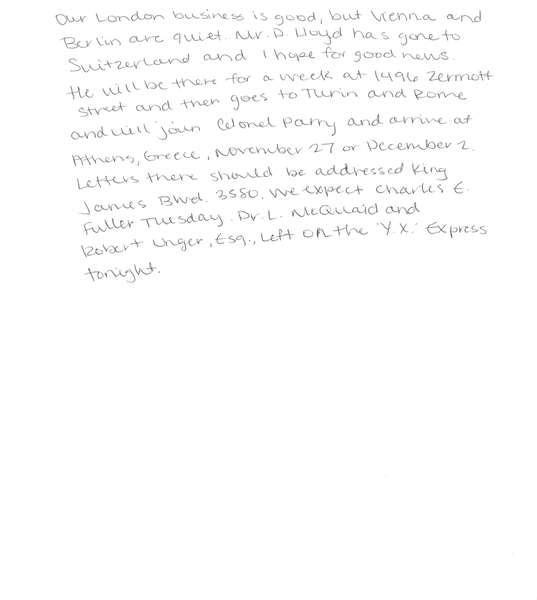 Our London business is good, but Vienna and
Berlin are quiet. Mr. D. Lloyd has gone to
Switzerland and I hope for good news.
He will be there for a week at 1496 Zermott
Street and then goes to Turin and Rome
and will join Colonel Parry and arrive at
Athens, Greece, November 27 or December 2.
Letters there should be addressed King
James Blvd. 3580. We expect Charles E.
Fuller Tuesday. Dr. L. McQuaid and
Robert Unger, Esq., Left on the 'Y.X.' Express
tonight.